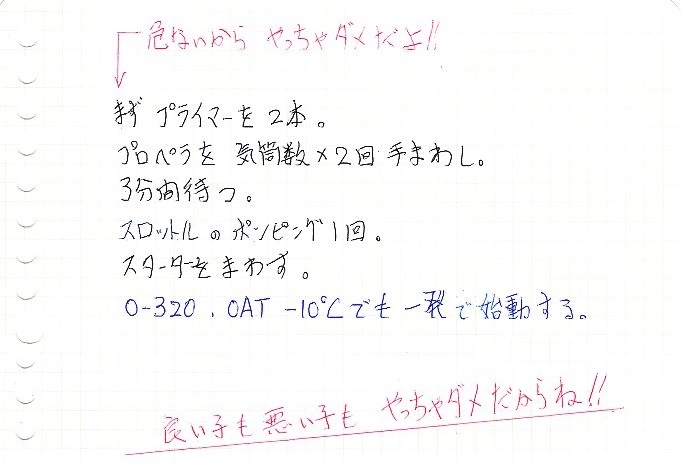 危ないから やっちゃダメだよ!!
まず プライマーを 2本。
プロペラを 気筒数×2回 手まわし。
3分間待つ。
スロットルのポンピング1回。
スターターをまわす。
O-320、OAT -10℃でも 一発で始動する。
良い子も悪い子も やっちゃダメだからね!!